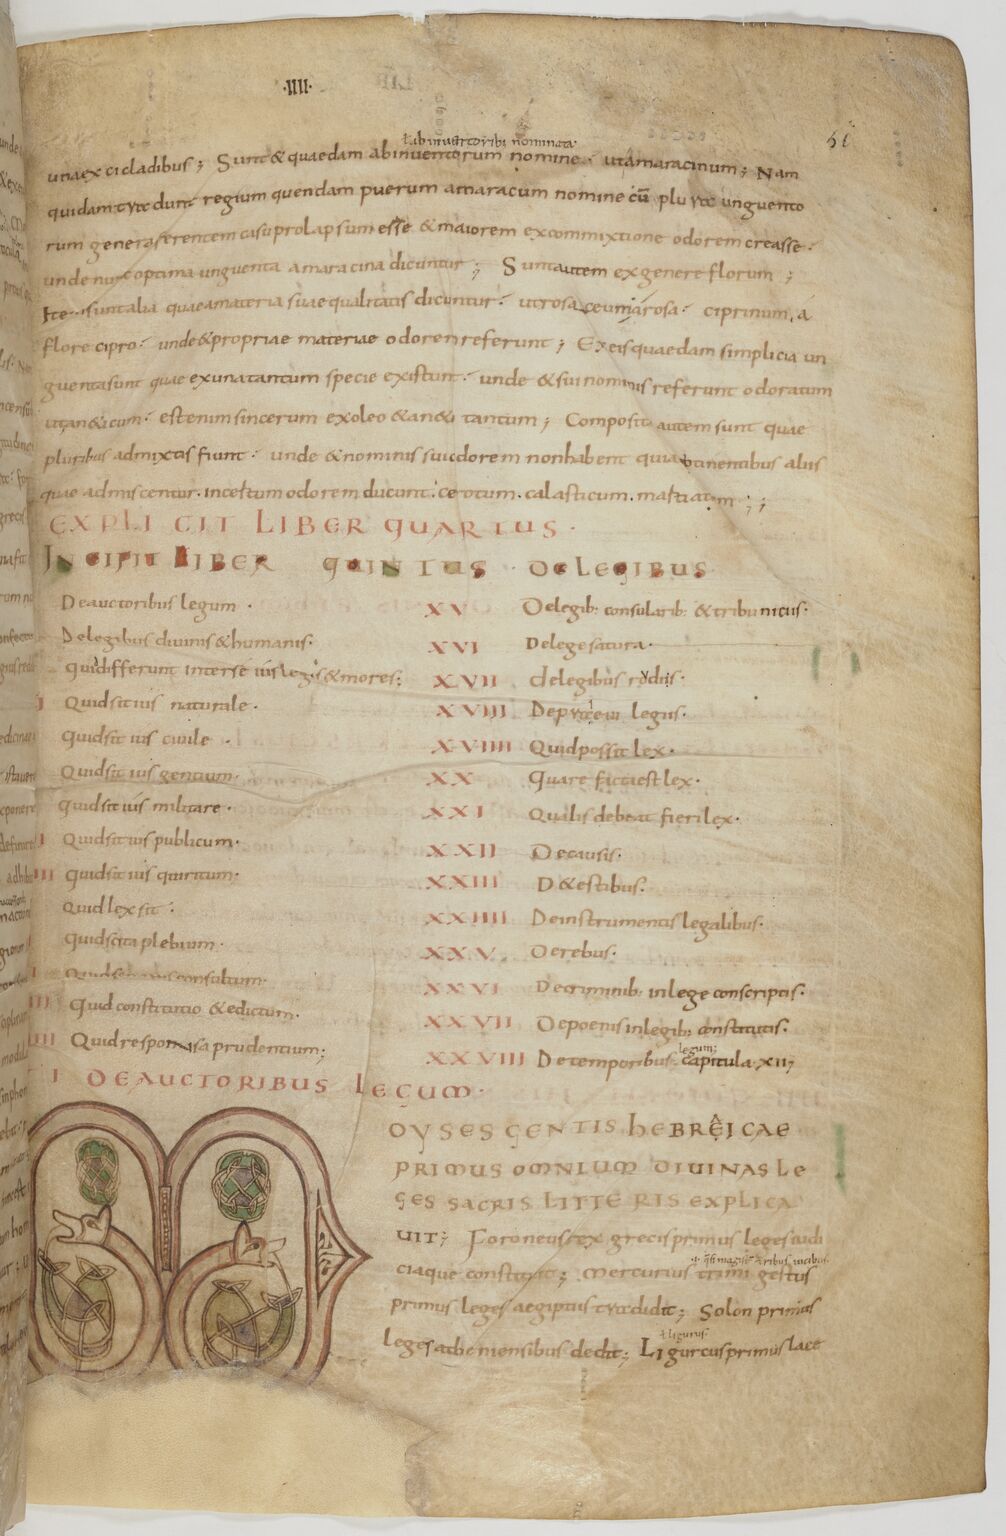 ·IIII·
ł ab inventoribus nominata
una ex cicladibus; Sunt & quaedam ab inventorum nomine· ut amaracinum; Nam
quidam tradunt regium quendam puerum amaracum nomine cū plura unguento
rum genera ferentem casu prolapsum esse & maiorem ex commixtione odorem creasse·
unde nunc optima unguenta amaracina dicuntur; Sunt autem ex genere florum;
Ite sunt alia quae a materia suae qualitatis dicuntur· ut rosaceum a rosa· ciprinum, a
flore cipro· unde & propriae materiae odorem referunt; Ex eis quaedam simplicia un
guenta sunt quae ex una tantum specie existunt· unde & sui nominis referunt odoratum
ut an&icum· est enim sincerum ex oleo & an&i tantum; Composita autem sunt quae
pluribus admixtis fiunt· unde & nominis sui odorem non habent quia obtinentibus aliis
quae admiscentur· incertum odorem ducunt· cerotum· calasticum· mastiatum;;
EXPLICIT LIBER QUARTUS·
INCIPIT LIBER QUINTUS · DE LEGIBUS
De auctoribus legum·
De legibus divinis & humanis·
Quid differunt inter se ius leges & mores;
I Quid sit ius naturale·
Quid sit ius civile·
Quid sit ius gentium·
Quid sit ius militare·
I Quid sit ius publicum·
III Quid sit ius quiritum·
Quid lex sit·
Quid scita plebium·
I Quid senatus consultum·
III Quid constitutio & edictum·
IIII Quid responsa prudentium;
XV De legib: consularib: & tribunicus·
XVI De lege satura·
XVII de legibus rodiis·
XVIII De privilegiis·
XVIIII Quid possit lex·
XX Quare facta est lex·
XXI Qualis debeat fieri lex·
XXII De causis·
XXIII De testibus·
XXIIII De instrumentis legalibus·
XXV De rebus·
XXVI De criminib: in lege conscriptis·
XXVII De poenis in legib: constitutis·
legum;
XXVIII De temporibus· capitula XII;
I DE AUCTORIBUS LEGUM·
M
OYSES GENTIS HEBRĘICAE
PRIMUS OMNIUM DIVINAS LE
GES SACRIS LITTERIS EXPLICA
UIT; Foroneus rex grecis primus leges iudi
ciaque constituit; Mercurius trimigestus
primus leges aegiptiis tradidit; Solon primus
ł ligurus·
leges atheniensibus dedit; Ligurcus primus lace